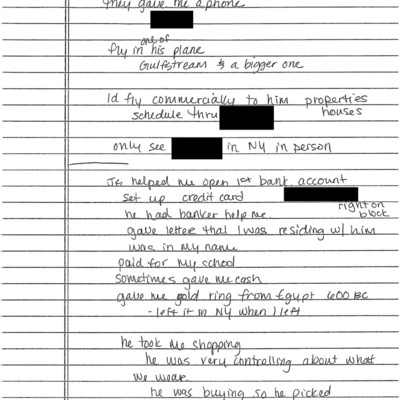 they gave me a phone
fly in one of his plane
Gulfstream & a bigger one
Id fly commercially to him properties houses
schedule thru
only see in NY in person
helped me open 1st bank account
set up credit card right on block
he had banker help me.
gave letter that I was residing w/ him
was in my name
paid for my school
sometimes gave me cash
gave me gold ring from Egypt 600 BC
- left it in NY when I left
he took me shopping
he was very controlling about what
we wear.
he was buying so he picked